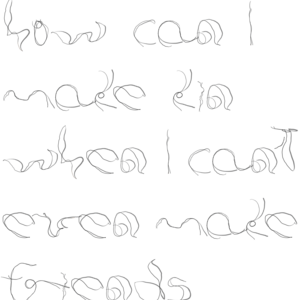 how can I
make kin
when I can't
even make
friends